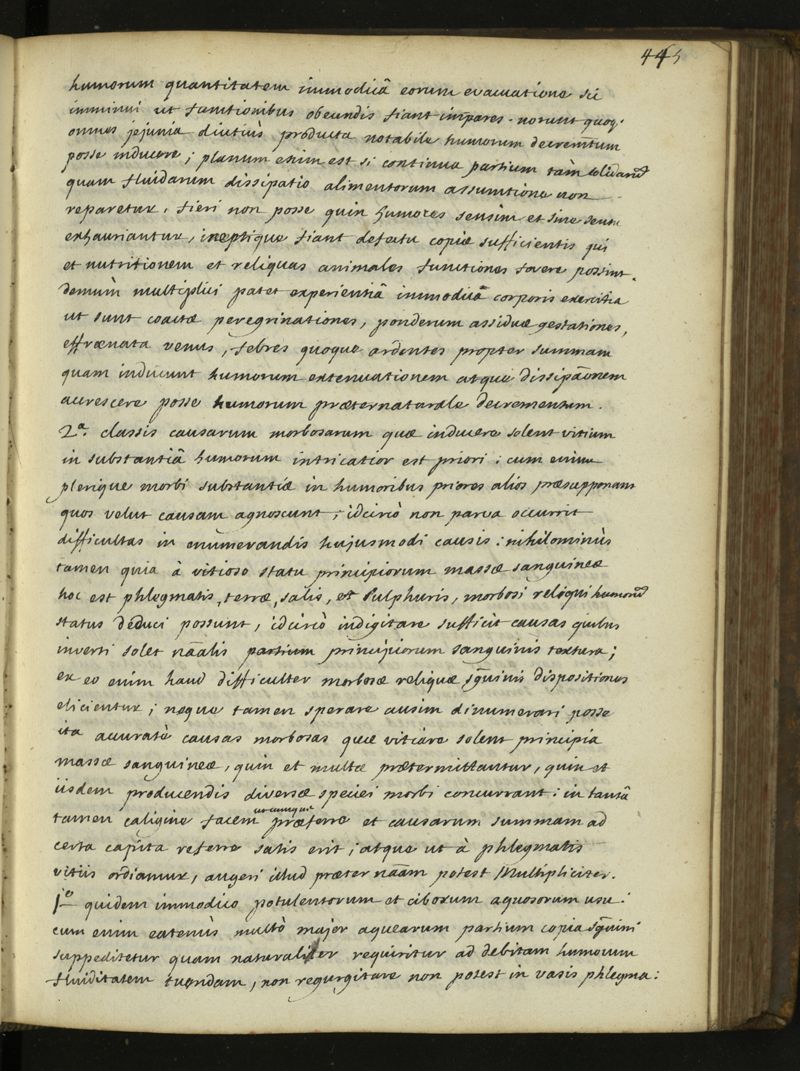 445
humorum quantitatem immodicâ eorum evacuatione sic
imminui ut functionibus obeundis fiant impares. norunt quoq.
omnes jejunia diutiùs producta notabile humorum decremtum
posse inducere; planum enim est si continua partium tàm solidarū
quam fluidarum dissipatio alimentorum assumtione non
reparetur, fieri non posse quin humores sensim et sine sensu
exhauriantur, ineptique fiant defectu copiæ sufficientis qui
et nutritionem et reliquas animales functiones fovere possint.
demùm multiplici patet experientiâ immodica corporis exercitia
ut sunt coactæ peregrinationes, ponderum assiduæ gestationes,
effrænata venus, febres quoque ardentes propter summam
quam inducunt humorum extenuationem atque dissipãonem
accrescere posse humorum præternaturale decrementum.
2a. classis causarum morbosarum quæ inducere solent vitium
in substantiâ humorum intricatior est priori: cum enim
plerique morbi substantiæ in humoribus priores alios præsupponant
quos velut causam agnoscunt, idcircò non parva occurrit
difficultas in enumerandis hujusmodi causis: nihilominùs
tamen quia à vitioso statu principiorum massæ sanguineæ
hoc est phlegmatis, terræ, salis, et sulphuris, morbosi reliqui humorū
status deduci possunt, idcircò indigitare sufficit causas quibus
inverti solet nãalis partium principiorum sanguinis textura;
ex eo enim haud difficulter morbosæ reliquæ sg̃uinis dispositiones
elicientur; neque tamen sperare ausim dinumerari posse
ita accuratè causas morbosas quæ vitiare solent principia
massæ sanguineæ, quin et multæ prætermittantur, quin et
iisdem producendis diversæ speciei morbi concurrant: in tantâ
tamen caligine facem utcumque præferre et causarum summam ad
certa capita referre satis erit; atque ut à phlegmatis
vitiis ordiamur, augeri illud præter nãam potest multipliciter.
1o quidem immodico potulentorum et ciborum aquosorum usu:
cum enim eatenùs multò major aquearum partium copia sg̃uini
suppeditetur quam naturaliter requiritur ad debitam humorum
fluiditatem tuendam, non regurgitare non potest in vasis phlegma: